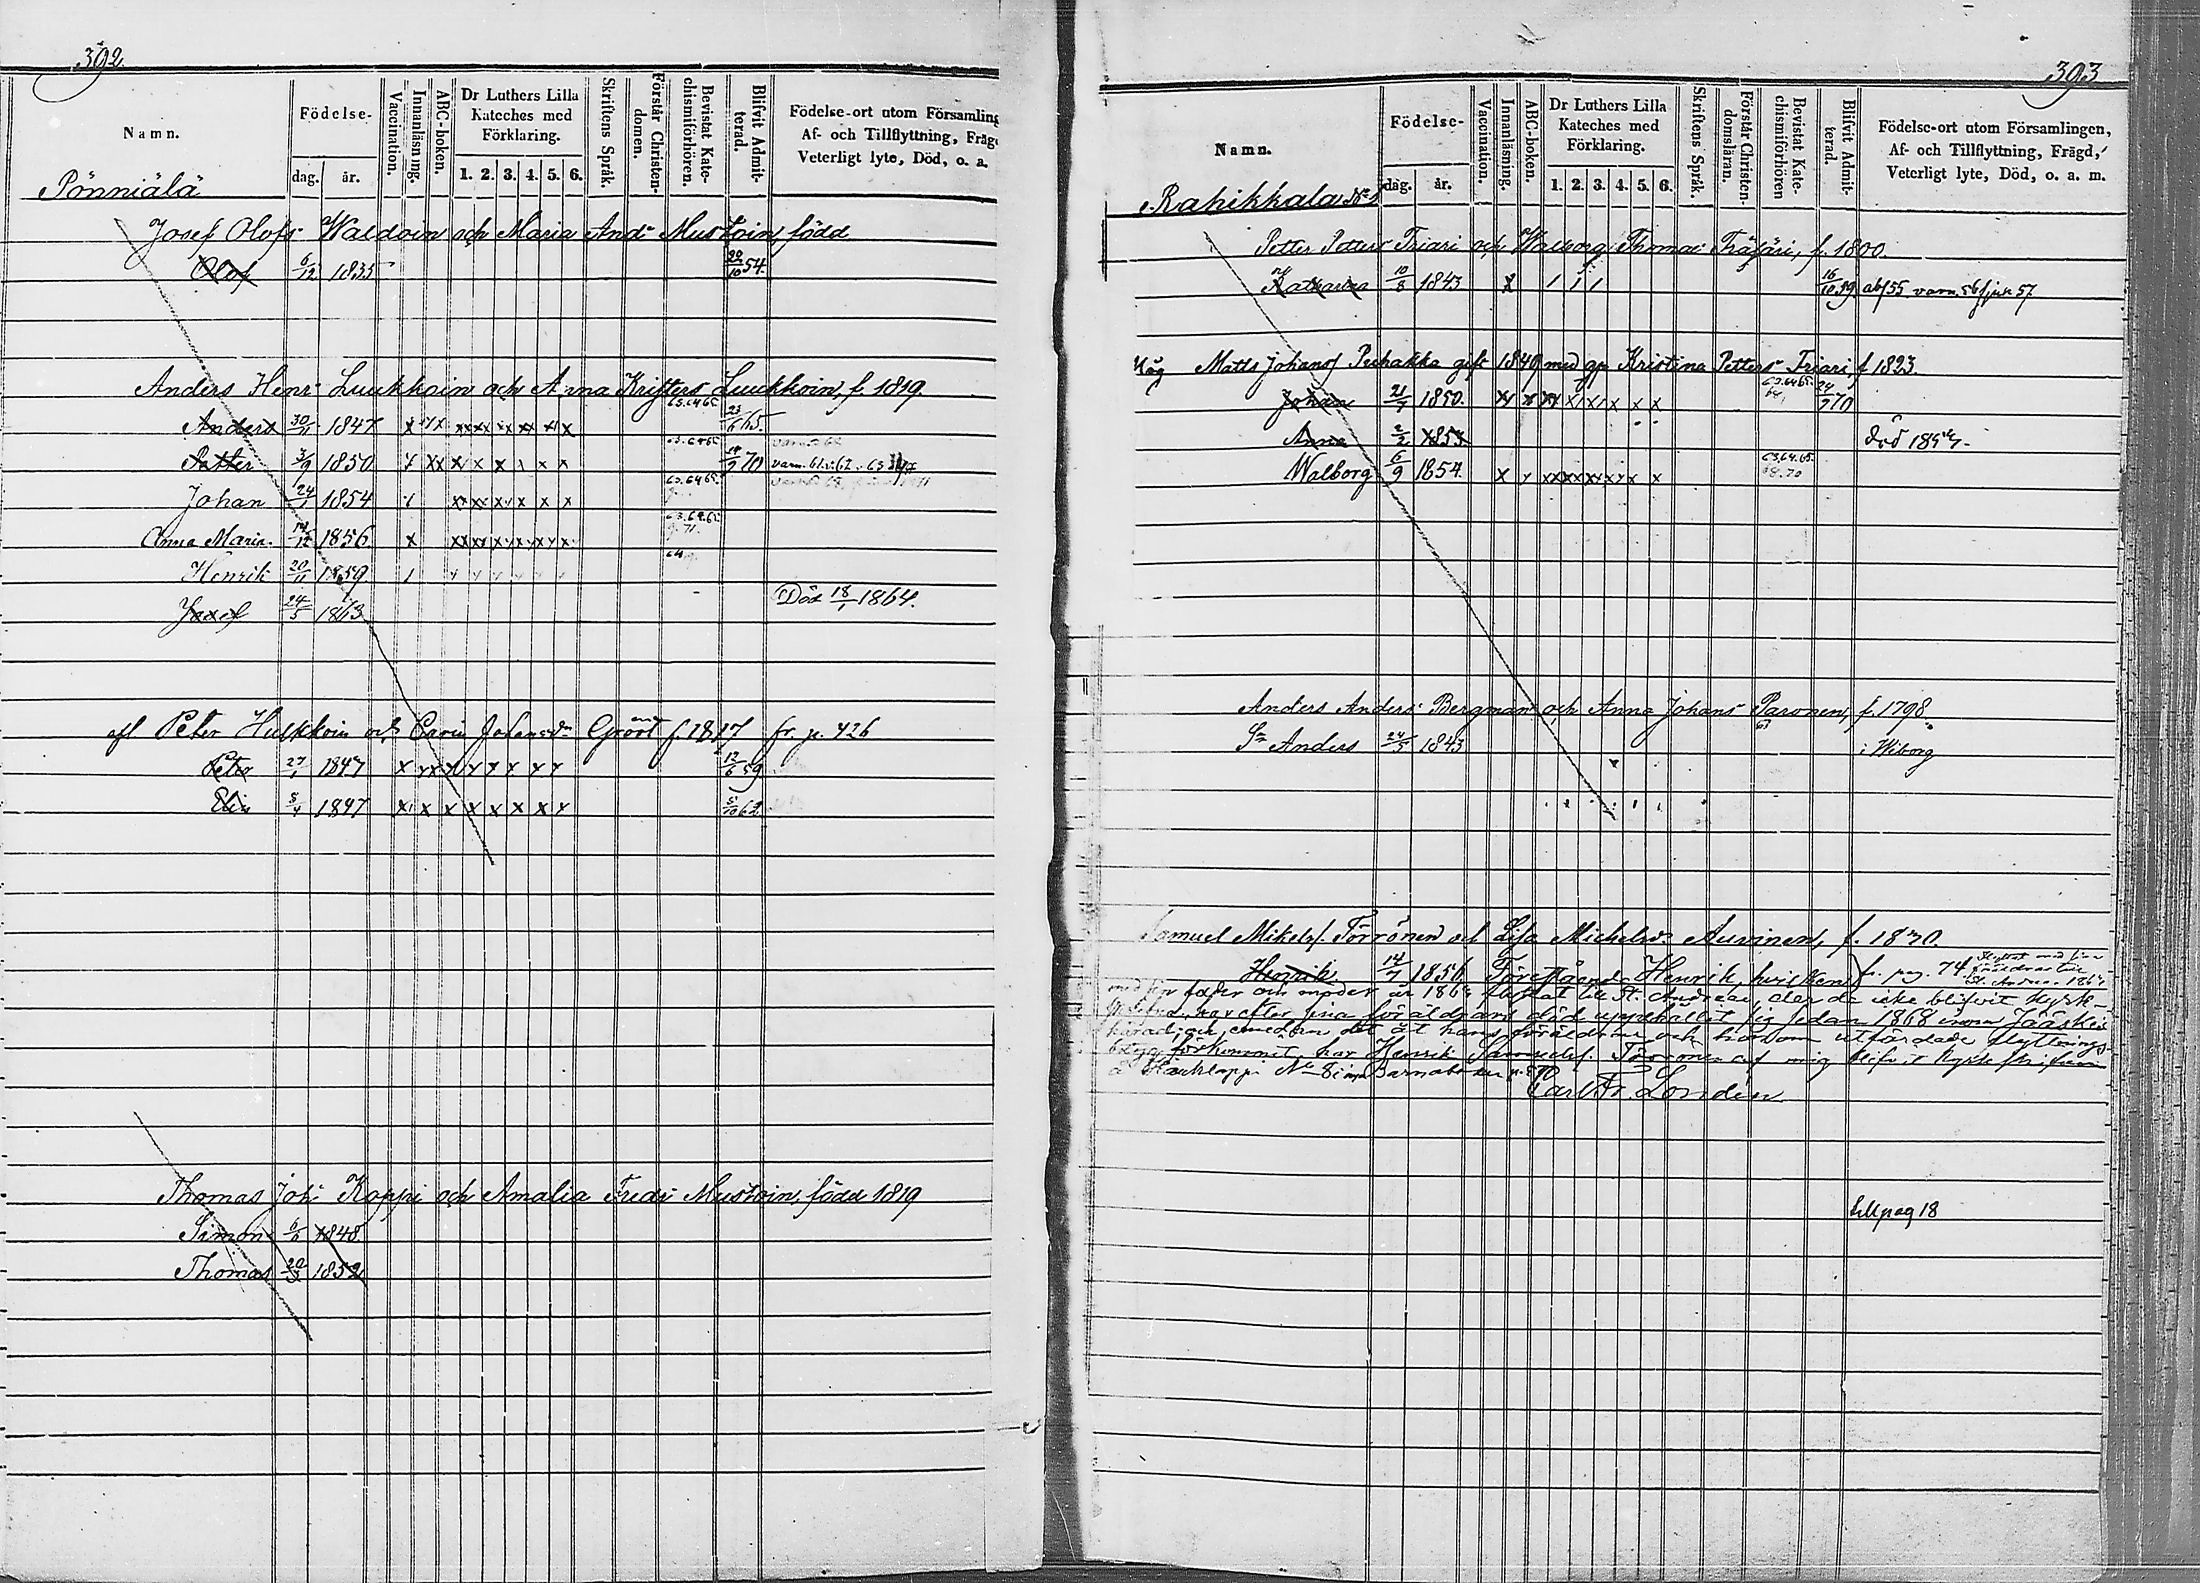 392
Namn.
Födelse-
dag.
år.
Vaccination.
Innanläsning.
ABC-boken.
Dr Luthers Lilla
Kateches med
Förklaring.
1. 2. 3. 4. 5. 6.
Skriftens Språk.
Förstår Christen-
domen.
Bevistat Kate-
chismiförhören.
Blifvit Admit-
terad.
Födelse-ort utom Församling
Af- och Tillflyttning, Fräg
Veterligt lyte, Död, o. a.
Pönniälä
Josef Olofs Waldoin och Maria And: Mustoin, född
Olof 6/12 1835 20/10 54.
Anders Henr: Luukkoin och Anna Kristers Luukkoin, f. 1819.
Anders 30/11 1847 x 63.64 65. 23/6 65.
Petter 3/9 1850 63.64 65 70 varn. 61. 62. 63
Johan 24/1 1854 63.64 65.
Anna Maria. 1856 x 63.64.65 71.
Henrik 20/11 1859 64
Josef 24/5 1863 Död 18/1 1864.
Peter Hulkkoin och Carin Johansdr Gröönt f. 1817 fr. p. 426
Peter 27/1 1847 12/6 59
Elis 5/4 1847 5/10 62
Thomas Joh: Koppi och Amalia Fredr Mustoin, född 1819
Simon 6/6 1848
Thomas 20/3 1852
393
Namn.
Födelse-
dag.
år.
Vaccination.
Innanläsning.
ABC-boken.
Dr Luthers Lilla
Kateches med
Förklaring.
1. 2. 3. 4. 5. 6.
Skriftens Språk.
Förstår Christen-
domsläran.
Bevistat Kate-
chismiförhören
Blifvit Admit-
terad.
Födelse-ort utom Församlingen,
Af- och Tillflyttning, Frägd,
Veterligt lyte, Död, o. a. m.
Rahikkala
Petter Petters Friari och Walborg Thomas: Träfäri, f. 1800.
Katharina 10/8 1843 x 1 1 1 16/10 59. abf 55 varn. 56
Måg Matts Johans Puhakka gift 1849 med gp Kristina Petters Friari, f 1823.
Johan 21/7 1850. 63.64 65. 24/7 70
Anna 2/2 1853 död
Walborg 6/9 1854. 63.64.65. 70
Anders Anders: Bergman och Anna Johans Paronen, f. 1798.
Sn Anders 24/5 1843 63 i Wiborg
Samuel Mikels. Törrönen och Lisa Michelsdr Auvinen, f. 1830.
Henrik 14/7 1856 Föreståend Henrik, hvilken fr. pag. 74. flyttat med sina föräldrar till St. Andreæ 186
med sin fader och moder år 186 flyttat till St. Andreae, der de icke blifvit kyrk-
har efter sina föräldrars död uppehållit sig sedan 1868 inom Jääskis
och, emedan det åt hans föräldrar och honom utfärdade flyttnings-
betyg förkommit, har Henrik Samuels. Törrönen af mig blifvit kyrkskrifven
å Harklappi No 8 Barnaboken
Carl Fr. Londen
till pag 18